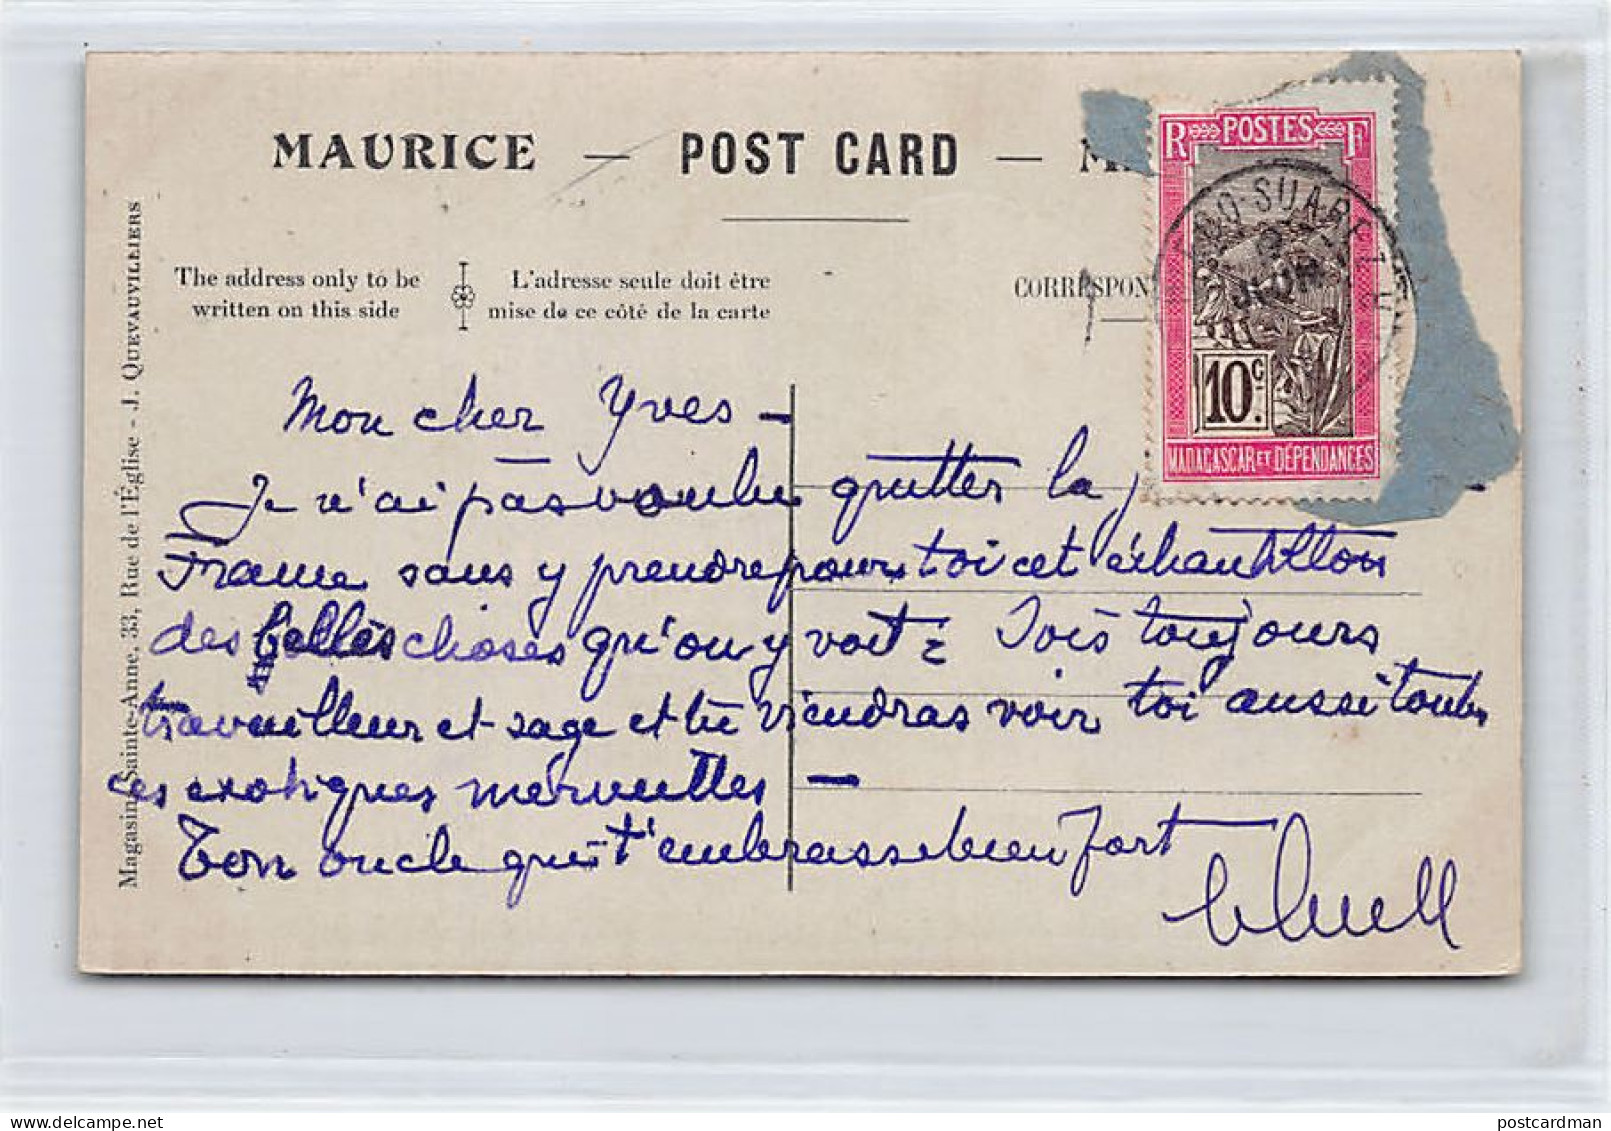 MAURICE — POST CARD — M
The address only to be
written on this side
L'adresse seule doit être
mise de ce côté de la carte
CORRESPON
Magasin Sainte-Anne, 33, Rue de l'Église - J. QUEVAUVILLIERS
R POSTES F
10 c.
MADAGASCAR ET DÉPENDANCES
SUAREZ
Mon cher Yves —
Je n'ai pas voulu quitter la
France sans y prendre pour toi cet échantillon
des belles choses qu'on y voit. Sois toujours
travailleur et sage et tu viendras voir toi aussi toutes
ces exotiques merveilles —
Ton oncle qui t'embrasse bien fort
postcardman